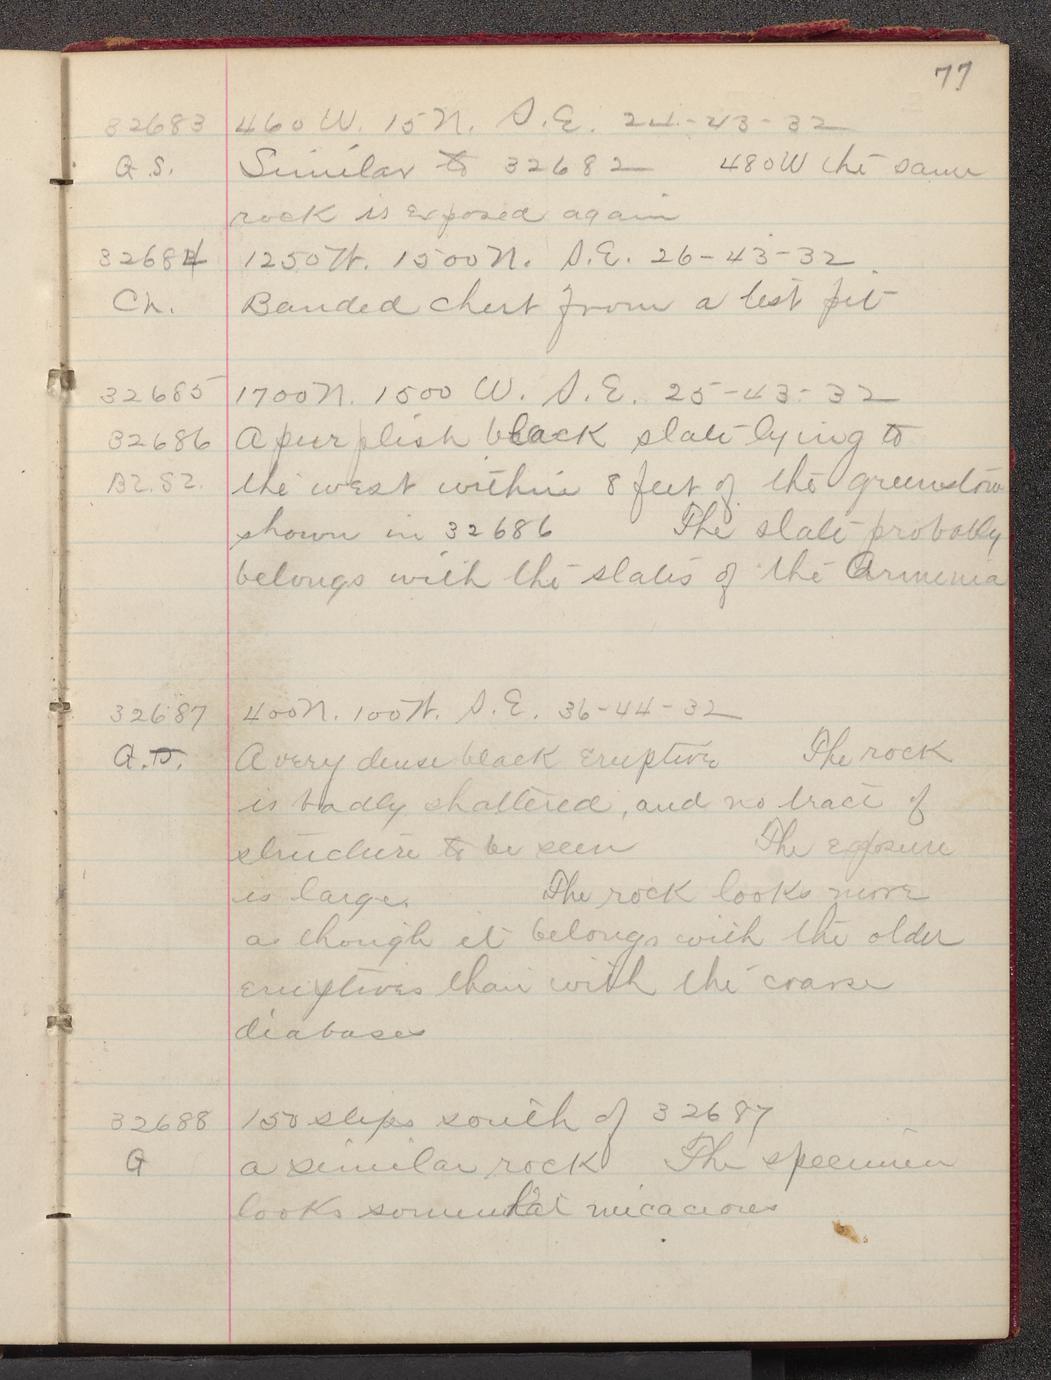 77
32683 460 W. 15 N. S.E. 24-43-32
G.S. Similar to 32682 480 W the same
rock is exposed again
32684 1250 W. 1500 N. S.E. 26-43-32
Ch. Banded chert from a test pit
32685 1700 N. 1500 W. S.E. 25-43-32
32686 A purplish black slate lying to
Bl. Sl. the west within 8 feet of the greenstone
shown in 32686 The slate probably
belongs with the slates of the Armenia
32687 400 N. 100 W. S.E. 36-44-32
A very dense black eruptive The rock
is badly shattered, and no trace of
structure to be seen The exposure
is large. The rock looks more
as though it belongs with the older
eruptives than with the coarse
diabases
32688 150 steps south of 32687
G a similar rock The specimen
looks somewhat micacious